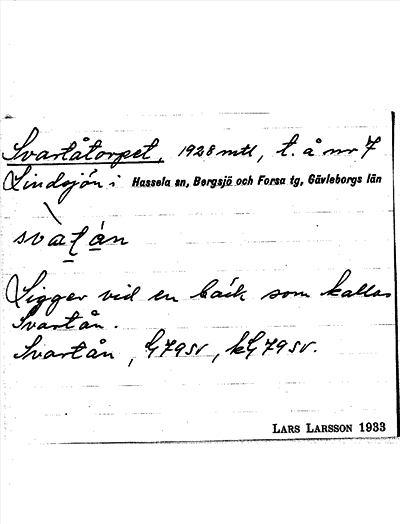 Svartåtorpet, 1928 mtl, t. å nr 7
Lindsjön i Hassela sn, Bergsjö och Forsa tg, Gävleborgs län
Ligger vid en bäck som kallas
Svartån.
Svartån, G79sv, kG79sv.
LARS LARSSON 1933